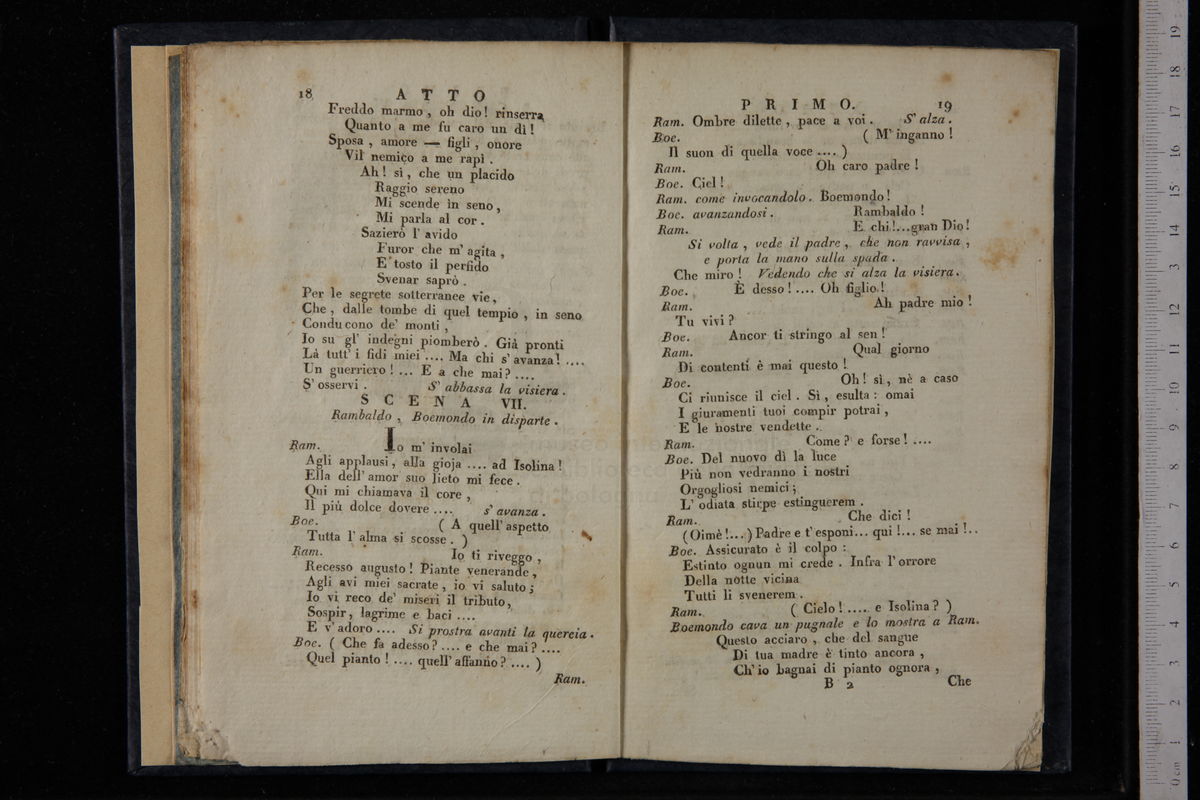 18 ATTO
Freddo marmo, oh dio! rinserra
Quanto a me fu caro un dì!
Sposa, amore — figli, onore
Vil nemico a me rapì.
Ah! sì, che un placido
Raggio sereno
Mi scende in seno,
Mi parla al cor.
Sazierò l'avido
Furor che m'agita,
E tosto il perfido
Svenar saprò.
Per le segrete sotterranee vie,
Che, dalle tombe di quel tempio, in seno
Conducono de' monti,
Io su gl' indegni piomberò. Già pronti
Là tutt' i fidi miei .... Ma chi s'avanza! ....
Un guerriero! ... E a che mai? ....
S'osservi. S'abbassa la visiera.
SCENA VII.
Rambaldo, Boemondo in disparte.
Ram. Io m'involai
Agli applausi, alla gioja .... ad Isolina!
Ella dell'amor suo lieto mi fece.
Qui mi chiamava il core,
Il più dolce dovere .... s'avanza.
Boe. ( A quell'aspetto
Tutta l'alma si scosse. )
Ram. Io ti riveggo,
Recesso augusto! Piante venerande,
Agli avi miei sacrate, io vi saluto;
Io vi reco de' miseri il tributo,
Sospir, lagrime e baci ....
E v'adoro .... Si prostra avanti la quercia.
Boe. ( Che fa adesso? .... e che mai? ....
Quel pianto! .... quell'affanno? .... )
Ram.
PRIMO. 19
Ram. Ombre dilette, pace a voi. S'alza.
Boe. ( M'inganno!
Il suon di quella voce .... )
Ram. Oh caro padre!
Boe. Ciel!
Ram. come invocandolo. Boemondo!
Boe. avanzandosi. Rambaldo!
Ram. E chi!...gran Dio!
Si volta, vede il padre, che non ravvisa,
e porta la mano sulla spada.
Che miro! Vedendo che si alza la visiera.
Boe. È desso! .... Oh figlio!
Ram. Ah padre mio!
Tu vivi?
Boe. Ancor ti stringo al sen!
Ram. Qual giorno
Di contenti è mai questo!
Boe. Oh! sì, nè a caso
Ci riunisce il ciel. Sì, esulta: omai
I giuramenti tuoi compir potrai,
E le nostre vendette.
Ram. Come? e forse! ....
Boe. Del nuovo dì la luce
Più non vedranno i nostri
Orgogliosi nemici;
L'odiata stirpe estinguerem.
Ram. Che dici!
(Oimè!...) Padre e t'esponi... qui!... se mai!...
Boe. Assicurato è il colpo:
Estinto ognun mi crede. Infra l'orrore
Della notte vicina
Tutti li svenerem.
Ram. ( Cielo! ..... e Isolina? )
Boemondo cava un pugnale e lo mostra a Ram.
Questo acciaro, che del sangue
Di tua madre è tinto ancora,
Ch'io bagnai di pianto ognora,
B 2 Che